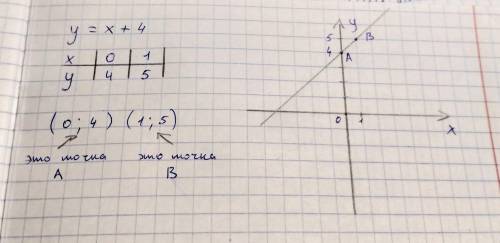 y = x + 4
x 0 1
y 4 5
(0; 4) (1; 5)
это точка это точка
A B
y
5 B
4 A
0 1
x